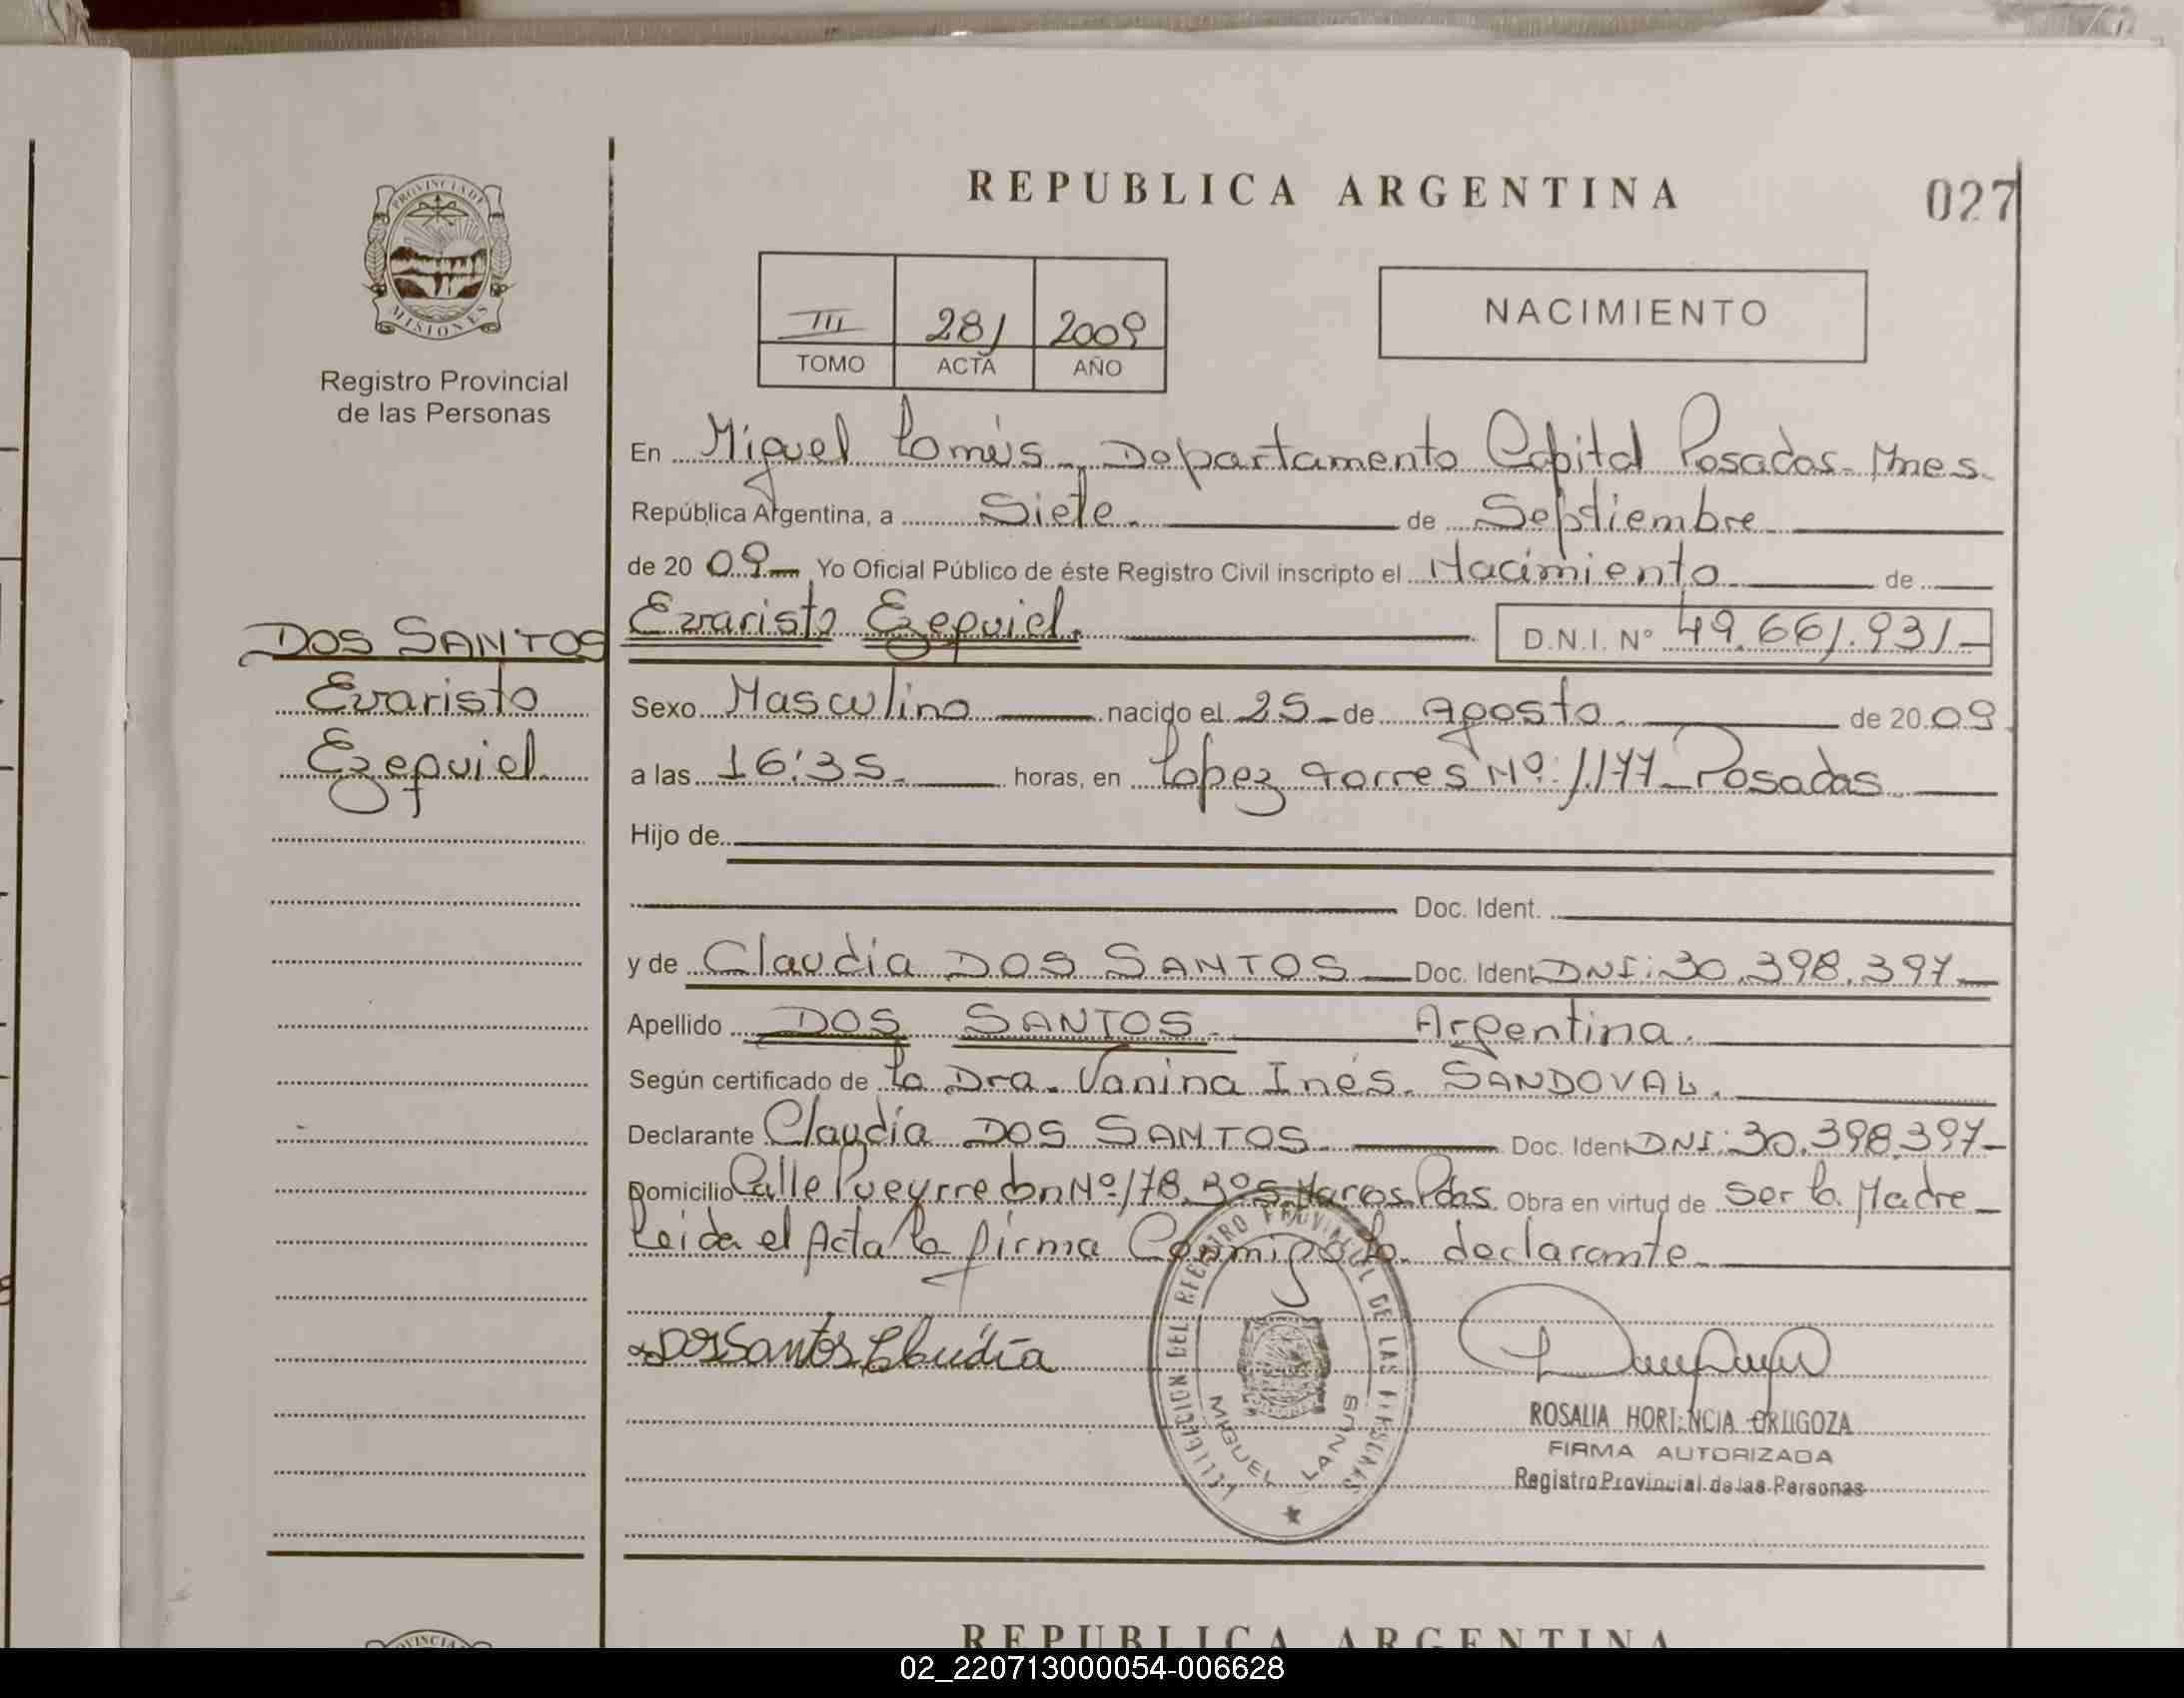 PROVINCIA DE
MISIONES
Registro Provincial
de las Personas
REPUBLICA ARGENTINA
027
III 281 2009
TOMO ACTA AÑO
NACIMIENTO
En Miguel Lanús, Departamento Capital Posadas - Mnes.
República Argentina, a Siete de Septiembre
de 20 09 Yo Oficial Público de éste Registro Civil inscripto el Nacimiento de
Evaristo Ezequiel. D.N.I. N° 49.661.931-
DOS SANTOS
Evaristo
Ezequiel
Sexo Masculino nacido el 25 de agosto de 20 09
a las 16:35 horas, en Lopez Torres Nº: 1.177 - Posadas
Hijo de
Doc. Ident.
y de Claudia DOS SANTOS Doc. Ident. DNI: 30.398.397-
Apellido DOS SANTOS. Argentina.
Según certificado de la Dra. Vanina Inés. SANDOVAL.
Declarante Claudia DOS SANTOS Doc. Ident DNI: 30.398.397-
Domicilio Calle Pueyrredon Nº 178. Bº S. Marcos Pdas. Obra en virtud de ser la Madre
Leida el Acta la firma Conmigo la declarante
Dos Santos Claudia
DEL REGISTRO PROVINCIAL DE LAS PERSONAS
MIGUEL LANUS
ROSALIA HORTENCIA ORTIGOZA
FIRMA AUTORIZADA
Registro Provincial de las Personas
REPUBLICA ARGENTINA
02_220713000054-006628